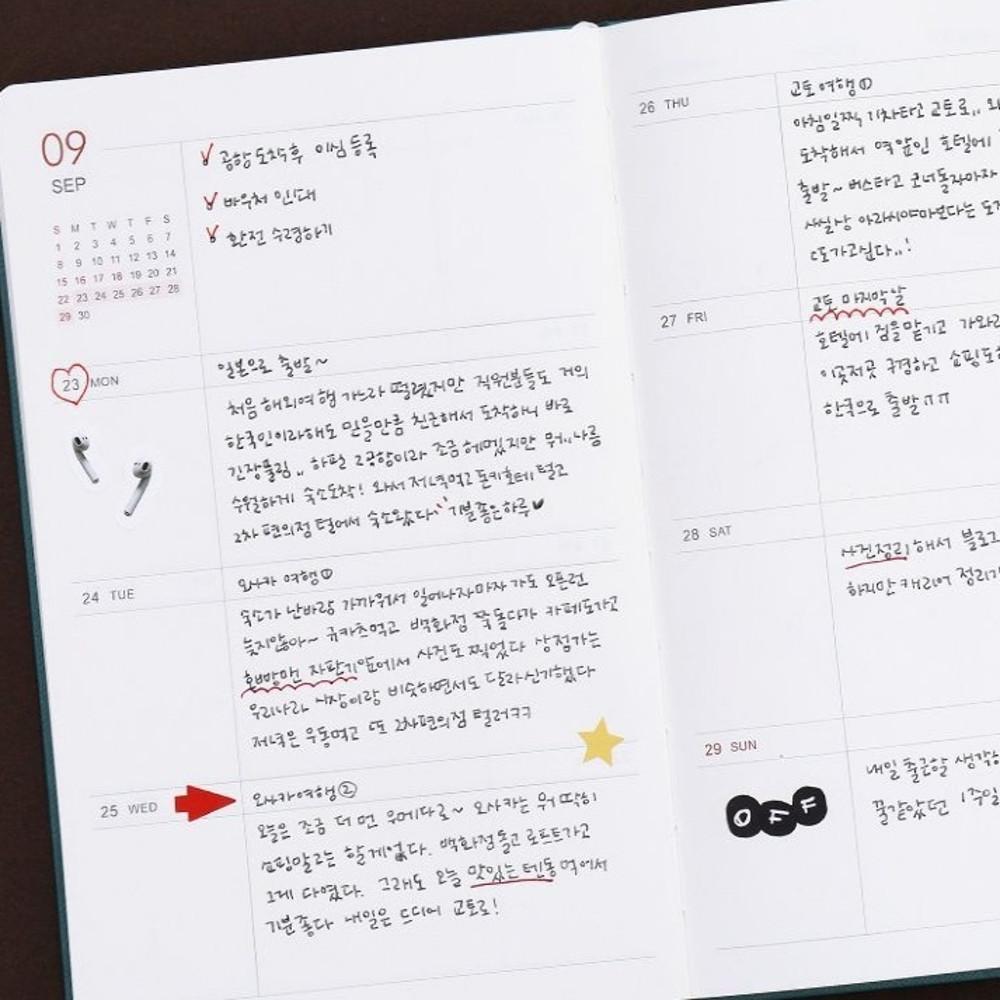 09
SEP
S M T W T F S
1 2 3 4 5 6 7
8 9 10 11 12 13 14
15 16 17 18 19 20 21
22 23 24 25 26 27 28
29 30
공항 도착 후 이심 등록
바우처 인쇄
환전 수령하기
23 MON
일본으로 출발~
처음 해외여행 가느라 떨렸지만 직원분들도 거의
한국인이라해도 믿을만큼 친근해서 도착하니 바로
긴장풀림.. 하필 2공항이라 조금 헤멨지만 뭐.. 나름
수월하게 숙소도착! 와서 저녁먹고 돈키호테 털고
2차 편의점 털어서 숙소왔다 기분좋은하루
24 TUE
오사카 여행①
숙소가 난바랑 가까워서 일어나자마자 가도 오픈런
늦지않아~ 규카츠먹고 백화점 쭉 돌다가 카페도가고
호빵맨 자판기앞에서 사진도 찍었다 상점가는
우리나라 시장이랑 비슷하면서도 달라 신기했다
저녁은 우동먹고 또 2차편의점 털러ㅋㅋ
25 WED
오사카여행②
오늘은 조금 더 먼 우메다로~ 오사카는 뭐 딱히
쇼핑말고는 할게없다. 백화점돌고 로프트가고
그게 다였다. 그래도 오늘 맛있는 텐동 먹어서
기분좋다 내일은 드디어 교토로!
26 THU
교토여행①
아침일찍 기차타고 교토로..
도착해서 역앞인 호텔에
출발~ 버스타고 코너돌자마자
사실상 아라시야마보다는
또가고싶다..!
27 FRI
교토 마지막날
호텔에 짐을맡기고
이곳저곳 구경하고
한국으로 출발ㅠㅠ
28 SAT
사진정리해서
하지만 캐리어
29 SUN
OFF
내일 출근할
꿀같았던